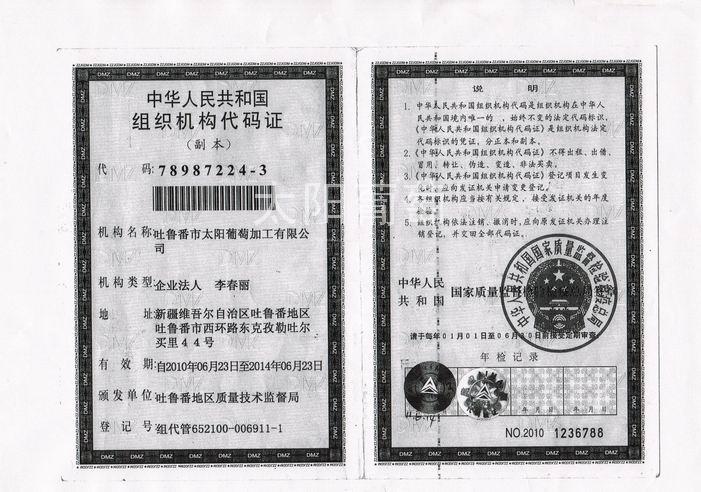 中华人民共和国
组织机构代码证
(副本)
代 码:78987224-3
机构名称:吐鲁番市太阳葡萄加工有限公
司
机构类型:企业法人 李春丽
地 址:新疆维吾尔自治区吐鲁番地区
吐鲁番市西环路东克孜勒吐尔
买里44号
有 效 期:自2010年06月23日至2014年06月23日
颁发单位:吐鲁番地区质量技术监督局
登 记 号:组代管652100-006911-1
说 明
1. 中华人民共和国组织机构代码是组织机构在中华人
民共和国境内唯一的、始终不变的法定代码标识,
《中华人民共和国组织机构代码证》是组织机构法定
代码标识的凭证,分正本和副本。
2. 《中华人民共和国组织机构代码证》不得出租、出借、
冒用、转让、伪造、变造、非法买卖。
3. 《中华人民共和国组织机构代码证》登记项目发生变
化时,应向发证机关申请变更登记。
4. 各组织机构应当按有关规定,接受发证机关的年度
5. 组织机构依法注销、撤消时,应向原发证机关办理注
销登记,并交回全部代码证。
中华人民
共和国 国家质量监督
请于每年01月01日至06月30日前接受定期审查
年检记录
年 月 日 年 月 日
NO.2010 1236788
太阳葡萄